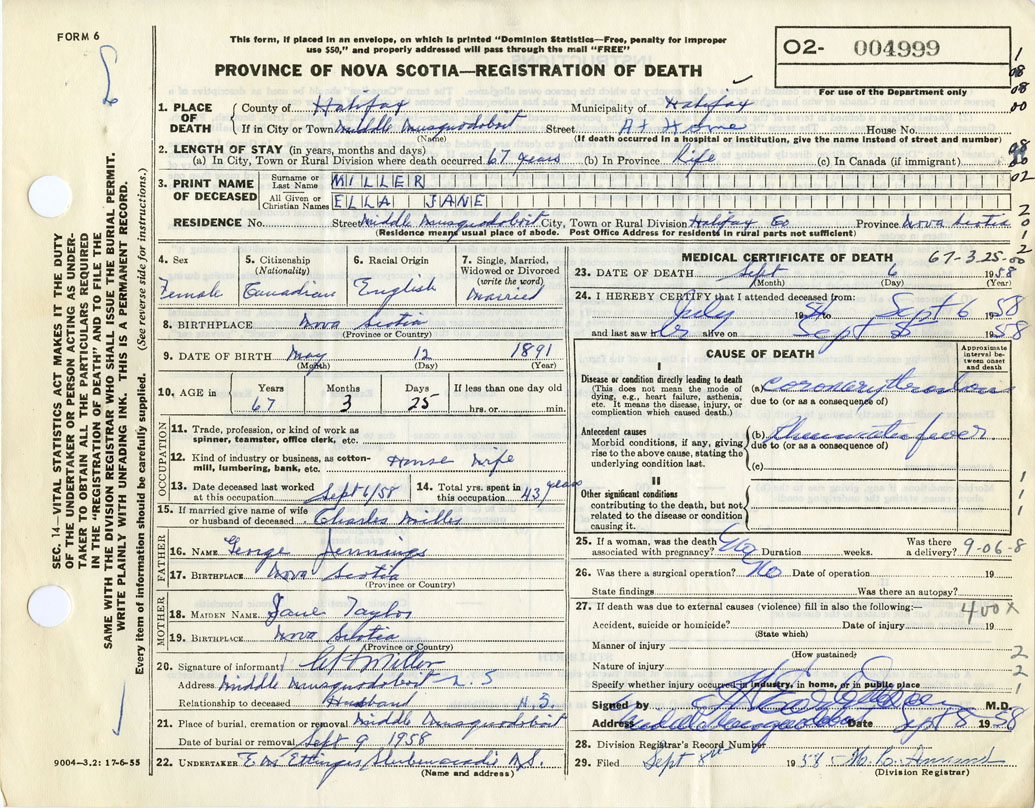 FORM 6
This form, if placed in an envelope, on which is printed "Dominion Statistics—Free, penalty for improper
use $50," and properly addressed will pass through the mail "FREE"
PROVINCE OF NOVA SCOTIA—REGISTRATION OF DEATH
O2- 004999
For use of the Department only
SEC. 14—VITAL STATISTICS ACT MAKES IT THE DUTY
OF THE UNDERTAKER OR PERSON ACTING AS UNDER-
TAKER TO OBTAIN ALL THE PARTICULARS REQUIRED
IN THE "REGISTRATION OF DEATH" AND TO FILE THE
SAME WITH THE DIVISION REGISTRAR WHO SHALL ISSUE THE BURIAL PERMIT.
WRITE PLAINLY WITH UNFADING INK. THIS IS A PERMANENT RECORD.
Every item of information should be carefully supplied. (See reverse side for instructions.)
1. PLACE OF DEATH County of Halifax Municipality of Halifax
If in City or Town Middle Musquodoboit Street At Home House No.
(Name) (If death occurred in a hospital or institution, give the name instead of street and number)
2. LENGTH OF STAY (in years, months and days)
(a) In City, Town or Rural Division where death occurred 67 years (b) In Province Life (c) In Canada (if immigrant)
3. PRINT NAME OF DECEASED Surname or Last Name MILLER
All Given or Christian Names ELLA JANE
RESIDENCE No. Street Middle Musquodoboit City, Town or Rural Division Halifax Co Province Nova Scotia
(Residence means usual place of abode. Post Office Address for residents in rural parts not sufficient)
4. Sex Female
5. Citizenship (Nationality) Canadian
6. Racial Origin English
7. Single, Married, Widowed or Divorced (write the word) Married
8. BIRTHPLACE Nova Scotia
(Province or Country)
9. DATE OF BIRTH May 12 1891
(Month) (Day) (Year)
10. AGE in Years 67 Months 3 Days 25 If less than one day old hrs. or min.
OCCUPATION
11. Trade, profession, or kind of work as
spinner, teamster, office clerk, etc.
12. Kind of industry or business, as cotton-
mill, lumbering, bank, etc. House Wife
13. Date deceased last worked at this occupation Sept 6/58 14. Total yrs. spent in this occupation 43 years
15. If married give name of wife
or husband of deceased Charles Miller
FATHER
16. NAME George Jennings
17. BIRTHPLACE Nova Scotia
(Province or Country)
MOTHER
18. MAIDEN NAME Jane Taylor
19. BIRTHPLACE Nova Scotia
(Province or Country)
20. Signature of informant Miller
Address Middle Musquodoboit N.S
Relationship to deceased Husband N.S.
21. Place of burial, cremation or removal Middle Musquodoboit
Date of burial or removal Sept 9 1958
22. UNDERTAKER Ettinger Shubenacadie N.S.
(Name and address)
9004—3.2: 17-6-55
MEDICAL CERTIFICATE OF DEATH 67-3.25-00
23. DATE OF DEATH Sept 6 1958
(Month) (Day) (Year)
24. I HEREBY CERTIFY that I attended deceased from:
July 1954 Sept 6 1958
and last saw her alive on Sept 5 1958
CAUSE OF DEATH
Approximate interval between onset and death
I
Disease or condition directly leading to death
(This does not mean the mode of
dying, e.g., heart failure, asthenia,
etc. It means the disease, injury, or
complication which caused death.)
(a) Coronary thrombosis
due to (or as a consequence of)
Antecedent causes
Morbid conditions, if any, giving
rise to the above cause, stating the
underlying condition last.
(b) Rheumatic fever
due to (or as a consequence of)
(c)
II
Other significant conditions
contributing to the death, but not
related to the disease or condition
causing it.
25. If a woman, was the death
associated with pregnancy? No Duration weeks. Was there a delivery? 9-06-8
26. Was there a surgical operation? No Date of operation 19
State findings Was there an autopsy?
27. If death was due to external causes (violence) fill in also the following:— 400X
Accident, suicide or homicide? Date of injury 19
(State which)
Manner of injury
(How sustained)
Nature of injury
Specify whether injury occurred in industry, in home, or in public place
Signed by M.D.
Address Middle Musquodoboit Date Sept 8 1958
28. Division Registrar's Record Number
29. Filed Sept 8th 1958
(Division Registrar)